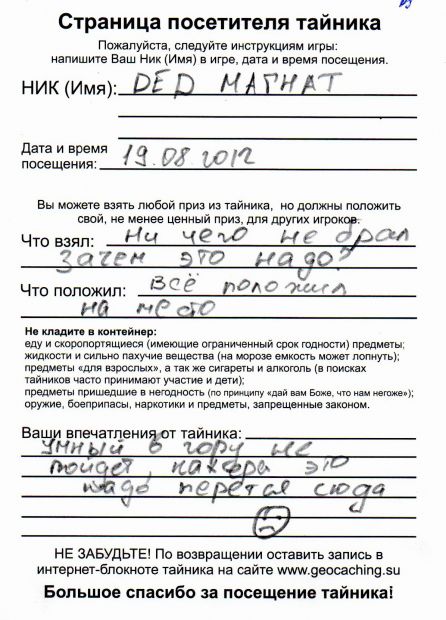 Страница посетителя тайника
Пожалуйста, следуйте инструкциям игры:
напишите Ваш Ник (Имя) в игре, дата и время посещения.
НИК (Имя): DED МАГНАТ
Дата и время
посещения: 19.08.2012
Вы можете взять любой приз из тайника, но должны положить
свой, не менее ценный приз, для других игроков.
Что взял: Ни чего не брал
Зачем это надо?
Что положил: Всё положил
на место
Не кладите в контейнер:
еду и скоропортящиеся (имеющие ограниченный срок годности) предметы;
жидкости и сильно пахучие вещества (на морозе емкость может лопнуть);
предметы «для взрослых», а так же сигареты и алкоголь (в поисках
тайников часто принимают участие и дети);
предметы пришедшие в негодность (по принципу «дай вам Боже, что нам негоже»);
оружие, боеприпасы, наркотики и предметы, запрещенные законом.
Ваши впечатления от тайника:
Умный в гору не
пойдет, это
надо перется сюда
НЕ ЗАБУДЬТЕ! По возвращении оставить запись в
интернет-блокноте тайника на сайте www.geocaching.su
Большое спасибо за посещение тайника!